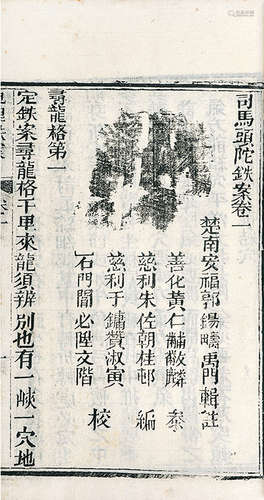 司馬頭陀鉄案卷一
楚南安福郭錫疇禹門輯註
善化黃仁黼黻麟 參
慈利朱佐朝桂邨 編
慈利于鏞贊淑寅
石門閻必陞文階 校
尋龍格第一
定鉄案尋龍格千里來龍須辨別也有一峽一穴地
卷一